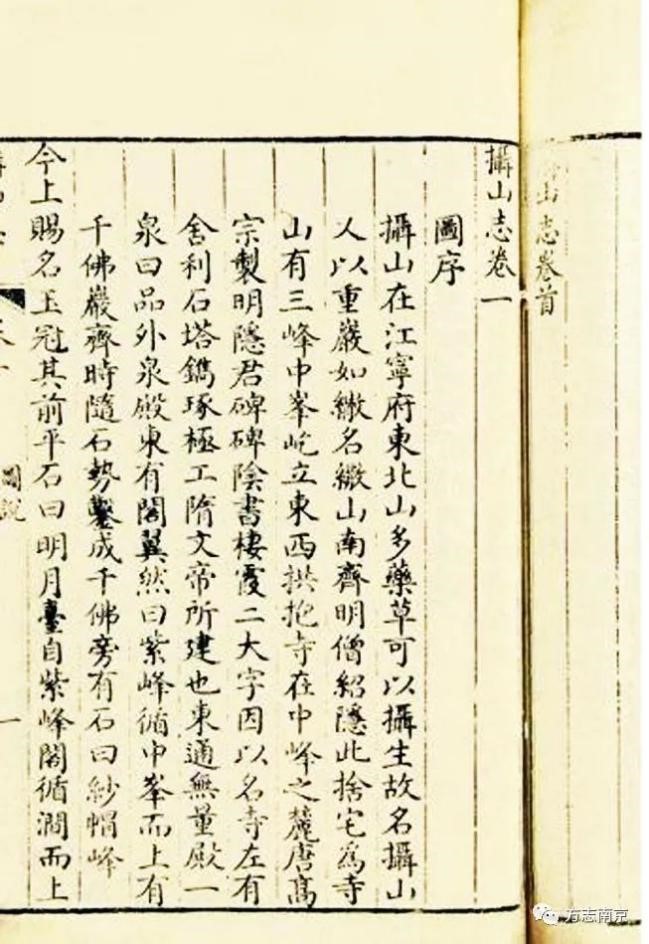 山志卷首
攝山志卷一
圖序
攝山在江寧府東北山多藥草可以攝生故名攝山
人以重巖如繖名繖山南齊明僧紹隱此捨宅為寺
山有三峰中峯屹立東西拱抱寺在中峰之麓唐高
宗製明隱君碑碑陰書棲霞二大字因以名寺左有
舍利石塔鐫琢極工隋文帝所建也東通無量殿一
泉曰品外泉殿東有閣翼然曰紫峰循中峯而上有
千佛巖齊時隨石勢鑿成千佛旁有石曰紗帽峰
今上賜名玉冠其前平石曰明月臺自紫峰閣循澗而上
圖說
一
方志南京